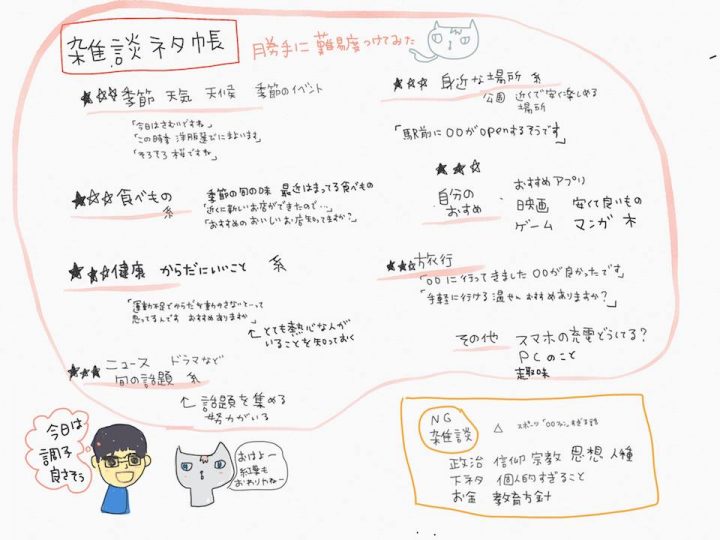 雑談ネタ帳
勝手に難易度つけてみた
★☆☆季節 天気 天候 季節のイベント
「今日はさむいですね」
「この時季 洋服選びにまよいます」
「そろそろ桜ですね」
★☆☆食べもの系
季節の旬の味 最近はまってる食べもの
「近くに新しいお店ができたので…」
「おすすめのおいしいお店知ってますか?」
健康 からだにいいこと 系
「運動不足でからだを動かさないとーって
思ってるんです おすすめありますか」
↑とても熱心な人が
いることを知っておく
★★★ニュース ドラマなど
旬の話題 系
↑話題を集める
努力がいる
身近な場所 系
公園 近くで安く楽しめる
場所
「駅前に〇〇がopenするそうです」
★★☆
自分の
おすすめ
おすすめアプリ
映画 安くて良いもの
ゲーム マンガ 本
旅行
「〇〇に行ってきました 〇〇が良かったです」
「手軽に行ける温せん おすすめありますか?」
その他
スマホの充電どうしてる?
PCのこと
趣味
今日は
調子
良さそう
おはよー
紅葉も
おわりやねー
NG
雑談
△ スポーツ
政治 信仰 宗教 思想 人種
下ネタ 個人的すぎること
お金 教育方針